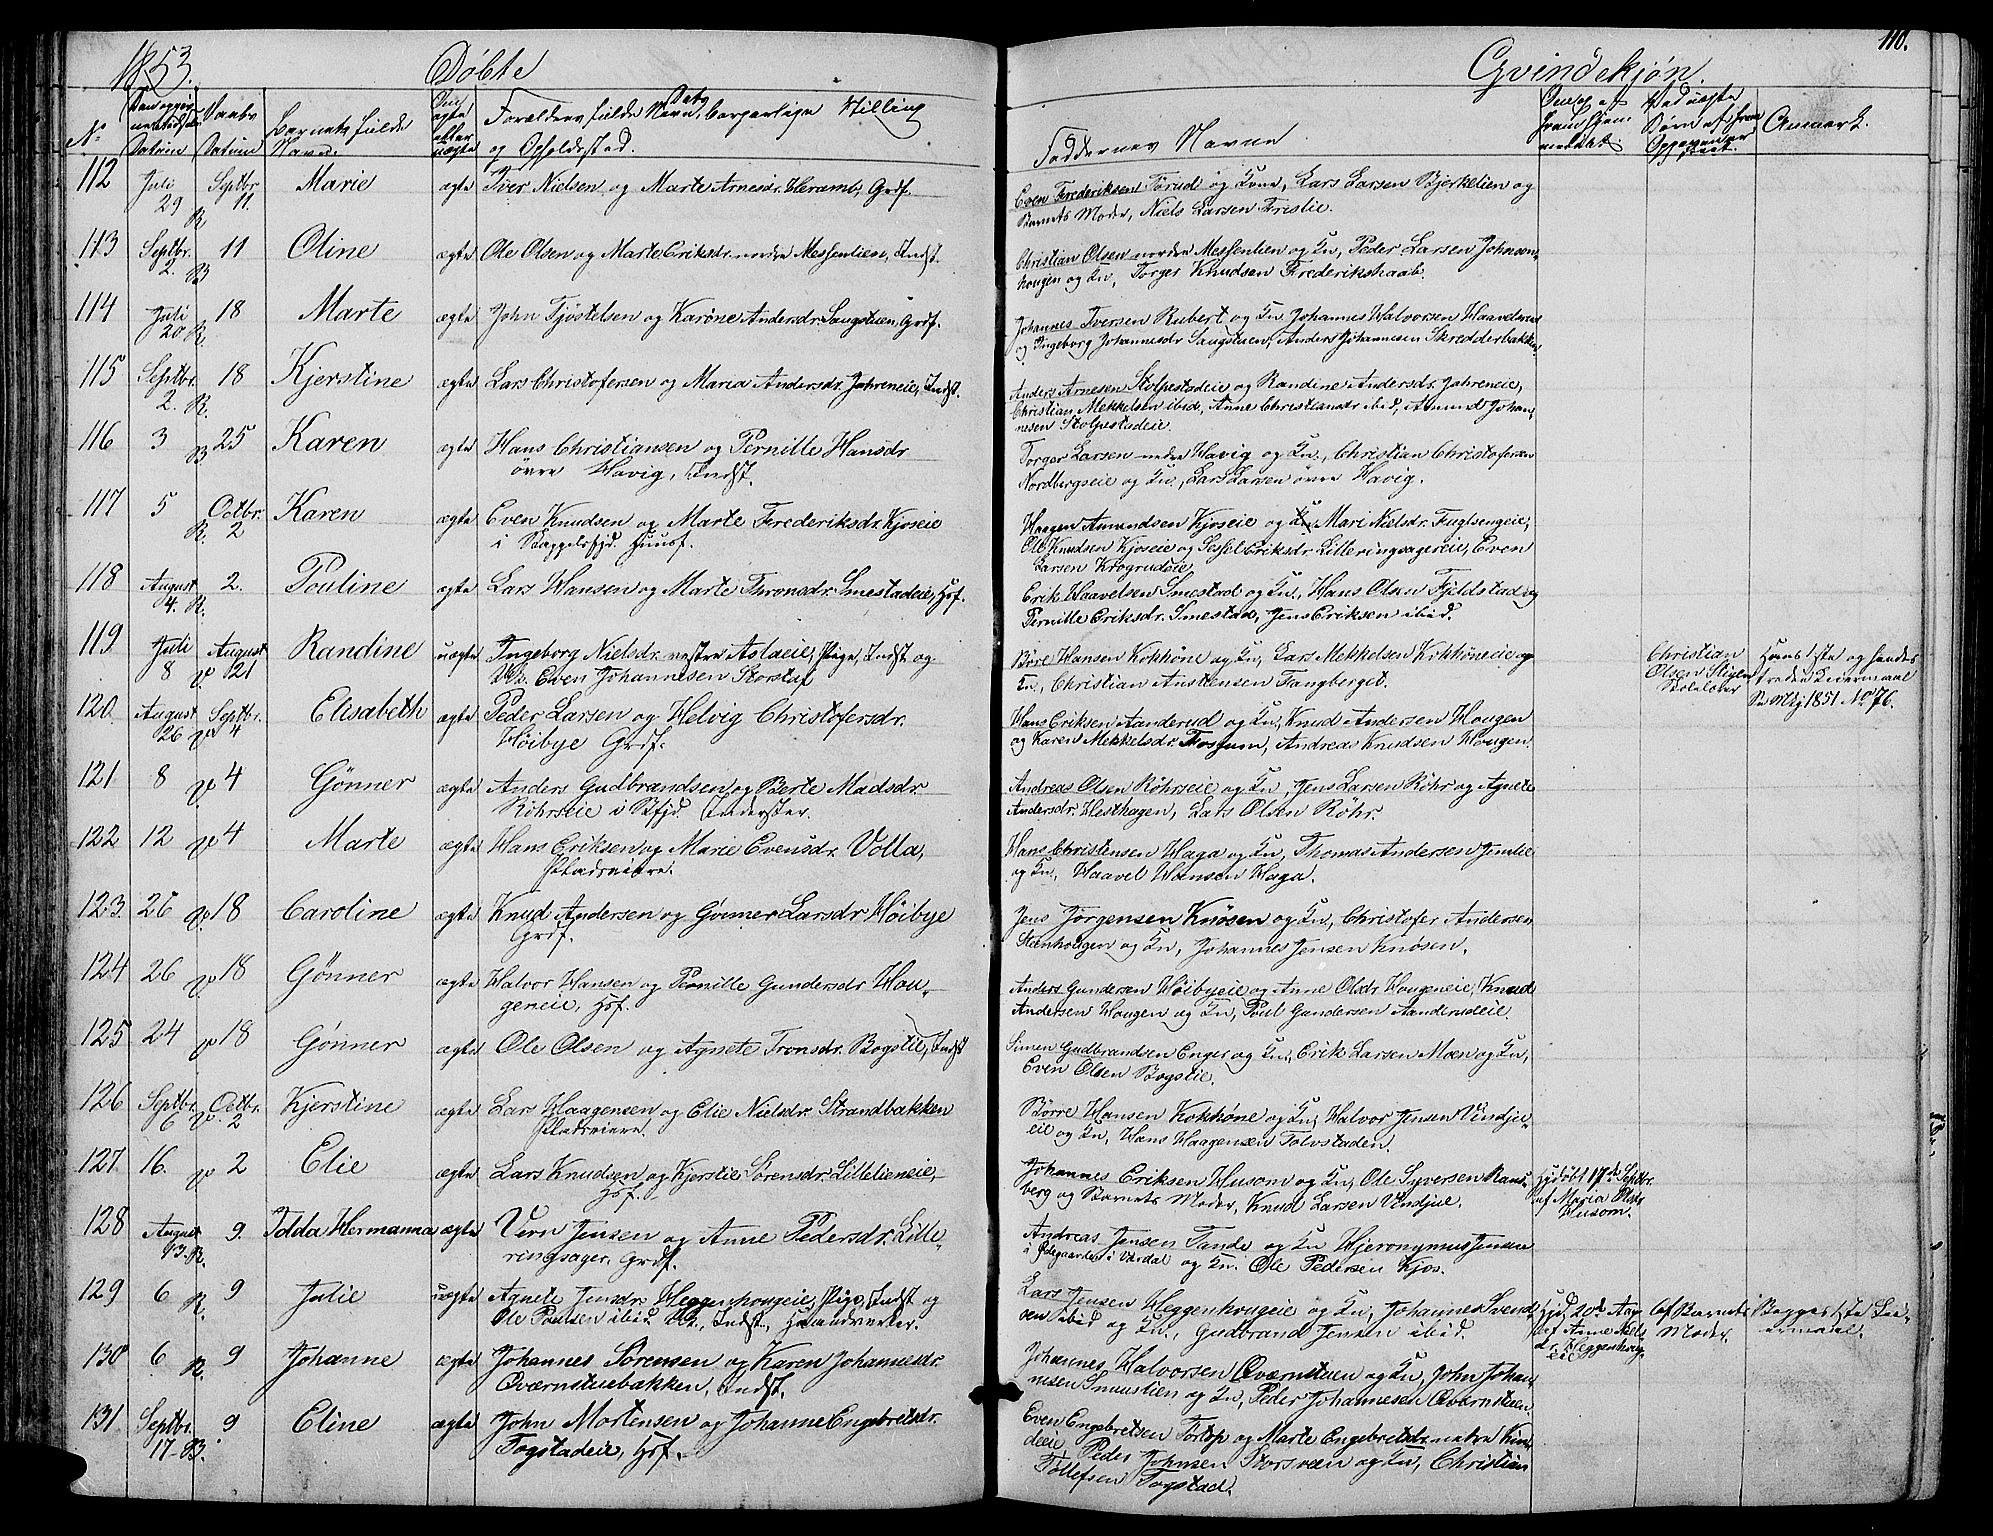 1853. Döbte
Gvindekjön. 110.
No
Datum
Daabs Datum
Barnets fulde Navn.
Ægte eller uægte
Forældres fulde Navn, borgerlige Stilling
og Opholdssted.
Faddernes Navne
Anmærk.
112 Juli 29 R. Septbr. 11. Marie ægte Iver Nielsen og Marte Arnesdr. Heramb, Grdf.
Even Frederiksen Törud og Kone, Lars Larsen Bjerkelien og
Barnets Moder, Niels Larsen Frestie.
113 Septbr. 2. B 11 Oline ægte Ole Olsen og Marte Eriksdr. nordre Messenlien, Indst.
Christian Olsen nordre Messenlien og Kn, Peder Larsen Johnsen-
hougen og Kn, Torger Knudsen Frederikshaab.
114 Juli 20 R. 18 Marte ægte John Tjöstelsen og Karöne Andersdr. Saugstuen, Grdf.
Johannes Iversen Rubert og Kn. Johannes Halvorsen Haavelsrud
og Ingeborg Johannesdr Saugstuen, Anders Johannesen Skredderbakken
115 Septbr. 2. R. 18 Kjerstine ægte Lars Christofersen og Maria Andersdr. Jahreneie, Indst.
Anders Arnesen Stolpestadeie og Randine Andersdr. Jahreneie,
Christian Mekkelsen ibid, Anne Christiansdr ibid, Amund Johan-
nesen Stolpestadeie.
116 3 B 25 Karen ægte Hans Christiansen og Pernille Hansdr
övre Havig, Indst.
Torger Larsen nedre Havig og Kn., Christian Christofersen
Nordbergseie og Kn., Lars Larsen övre Havig.
117 5 R. Octbr. 2 Karen ægte Even Knudsen og Marte Frederiksdr. Kjoseie
i Skoppelsfjd. Huusf.
Haagen Amundsen Kjoseie og Kn, Mari Nielsdr. Fuglsengeie,
Ole Knudsen Kjoseie og Sessel Eriksdr. Lilleringsagereie, Even
Larsen Krogrudeie
118 August 4. R. 2. Pouline ægte Lars Hansen og Marte Thronsdr. Smestadeie, Hsf.
Erik Haavelsen Smestad og Kn, Hans Olsen Fjeldstad og
Pernille Eriksdr. Smestad, Jens Eriksen ibid.
119 Juli 8 v August 21 Randine uægte Ingeborg Nielsdr. vestre Astaeie, Pige, Indst og
Uk. Even Johannesen Storstuf
Börre Hansen Kokhöne og Kn, Lars Mekkelsen Kokhöneie og
Kn, Christian Austensen Fangberget.
Christian
Olsen Stigen
Skolelærer
Hans 1ste og hendes
treden Leiermaal
1851 No 76.
120. August 26 v Septbr. 4 Elisabeth ægte Peder Larsen og Helvig Christofersdr.
Höibye Grdf.
Hans Eriksen Aanderud og Kn, Knud Andersen Hougen
og Karen Mekkelsdr. Fossum, Andreas Knudsen Hougen.
121 8 v 4 Gönner ægte Anders Gudbrandsen og Berte Madsdr
Röhrseie i Bfjd. Inderster.
Andreas Olsen Röhrseie og Kn, Jens Larsen Röhr og Agnete
Andersdr. Hesthagen, Lars Olsen Röhr.
122 12 v 4 Marte ægte Hans Eriksen og Marie Evensdr. Volla,
Pladseiere.
Hans Christensen Haga og Kn, Thomas Andersen Jenslie
og Kn, Haavel Hansen Haga.
123. 26 v. 18 Caroline ægte Knud Andersen og Gönner Larsdr Höibye
Grdf.
Jens Jörgensen Knösen og Kn, Christofer Andersen
Steenhougen og Kn, Johannes Jensen Knösen.
124 26 v. 18 Gönner ægte Halvor Hansen og Pernille Gundersdr Hou-
geneie, Hsf.
Anders Gundersen Höibyeie og Anne Olsdr Hougeneie, Knud
Andersen Hougen og Kn, Poul Gundersen Aanderudeie.
125 24 v 18 Gönner ægte Ole Olsen og Agnete Tronsdr. Bogstie, Indst
Simen Gudbrandsen Enger og Kn, Erik Larsen Moen og Kn,
Even Olsen Bogstie.
126 Septbr. 6 v. Octbr. 2 Kjerstine ægte Lars Haagensen og Elie Nielsdr. Strandbakken
Pladseiere.
Börre Hansen Kokhöne og Kn, Halvor Jensen Vendju-
eie og Kn, Hans Haagensen Tolvstaden.
127. 16. v 2 Elie ægte Lars Knudsen og Kjerstie Sörensdr. Lillelieneie,
Hsf.
Johannes Eriksen Husom og Kn, Ole Syversen Rans-
berg og Barnets Moder, Knud Larsen Vendjue.
Hjdöbt 17de Septbr.
af Maria Olsdr
Husom.
128 August 13. R. 9. Idda Hermanna ægte Iver Jensen og Anne Pedersdr. Lille-
ringsager, Grdf.
Andreas Jensen Tande og Kn Hjeronymus Jensen
i Ödegaarden i Værdal og Kn. Ole Pedersen Kjos.
129 6 R. 9 Julie uægte Agnete Jensdr. Heggenhougeie, Pige, Indst og
Ole Poulsen ibid. Uk., Indst., Haandverker.
Lars Jensen Heggenhougeie og Kn, Johannes Svend-
sen ibid og Kn., Gudbrand Jensen ibid.
Hjd. 20de Aug
af Anne Niels-
dr. Heggenhoug-
eie
Af Barnets
Moder.
Begges 1ste Lei-
ermaal.
130 6 R. 9 Johanne ægte Johannes Sörensen og Karen Johannesdr.
Qværnstuebakken, Indst.
Johannes Halvorsen Qværnstuen og Kn, John Johan-
nesen Smustien og Kn, Peder Johannesen Qværnstuen
131 Septbr. 17-B. 9 Eline ægte John Mortensen og Johanne Engebretsdr.
Togstadeie, Hsf.
Even Engebretsen Tortop og Marte Engebretsdr. nedre Kin-
deeie, Peder Johnsen Storsveen og Kn, Christian
Tollefsen Togstad.